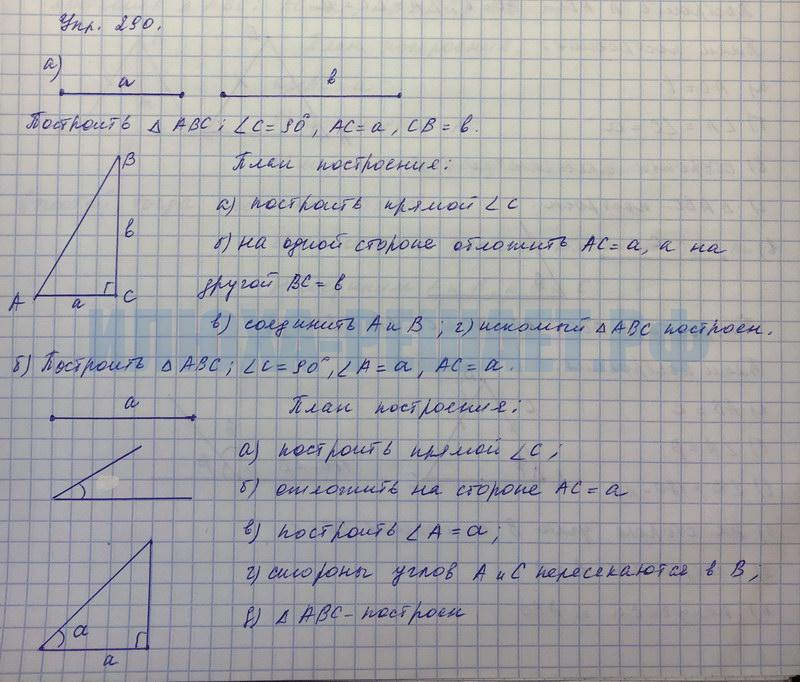 Упр. 290.
а)
а в
Построить △ ABC; ∠C=90°, AC=a, CB=в.
B
План построения:
а) построить прямой ∠C
в
б) на одной стороне отложить AC=a, а на
другой BC=в
A а C
в) соединить A и B; г) искомый △ABC построен.
б) Построить △ ABC; ∠C=90°, ∠A=a, AC=a.
а
План построения:
а) построить прямой ∠C;
б) отложить на стороне AC=a
в) построить ∠A=a;
г) стороны углов A и C пересекаются в B;
д) △ ABC - построен
а
а